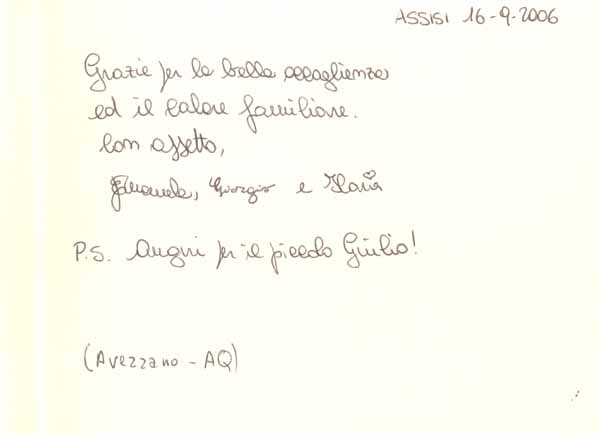 ASSISI 16-9-2006
Grazie per la bella accoglienza
ed il calore familiare.
Con affetto,
Giorgio e Ilaria
P.S. Auguri per il piccolo Giulio!
(Avezzano - AQ)